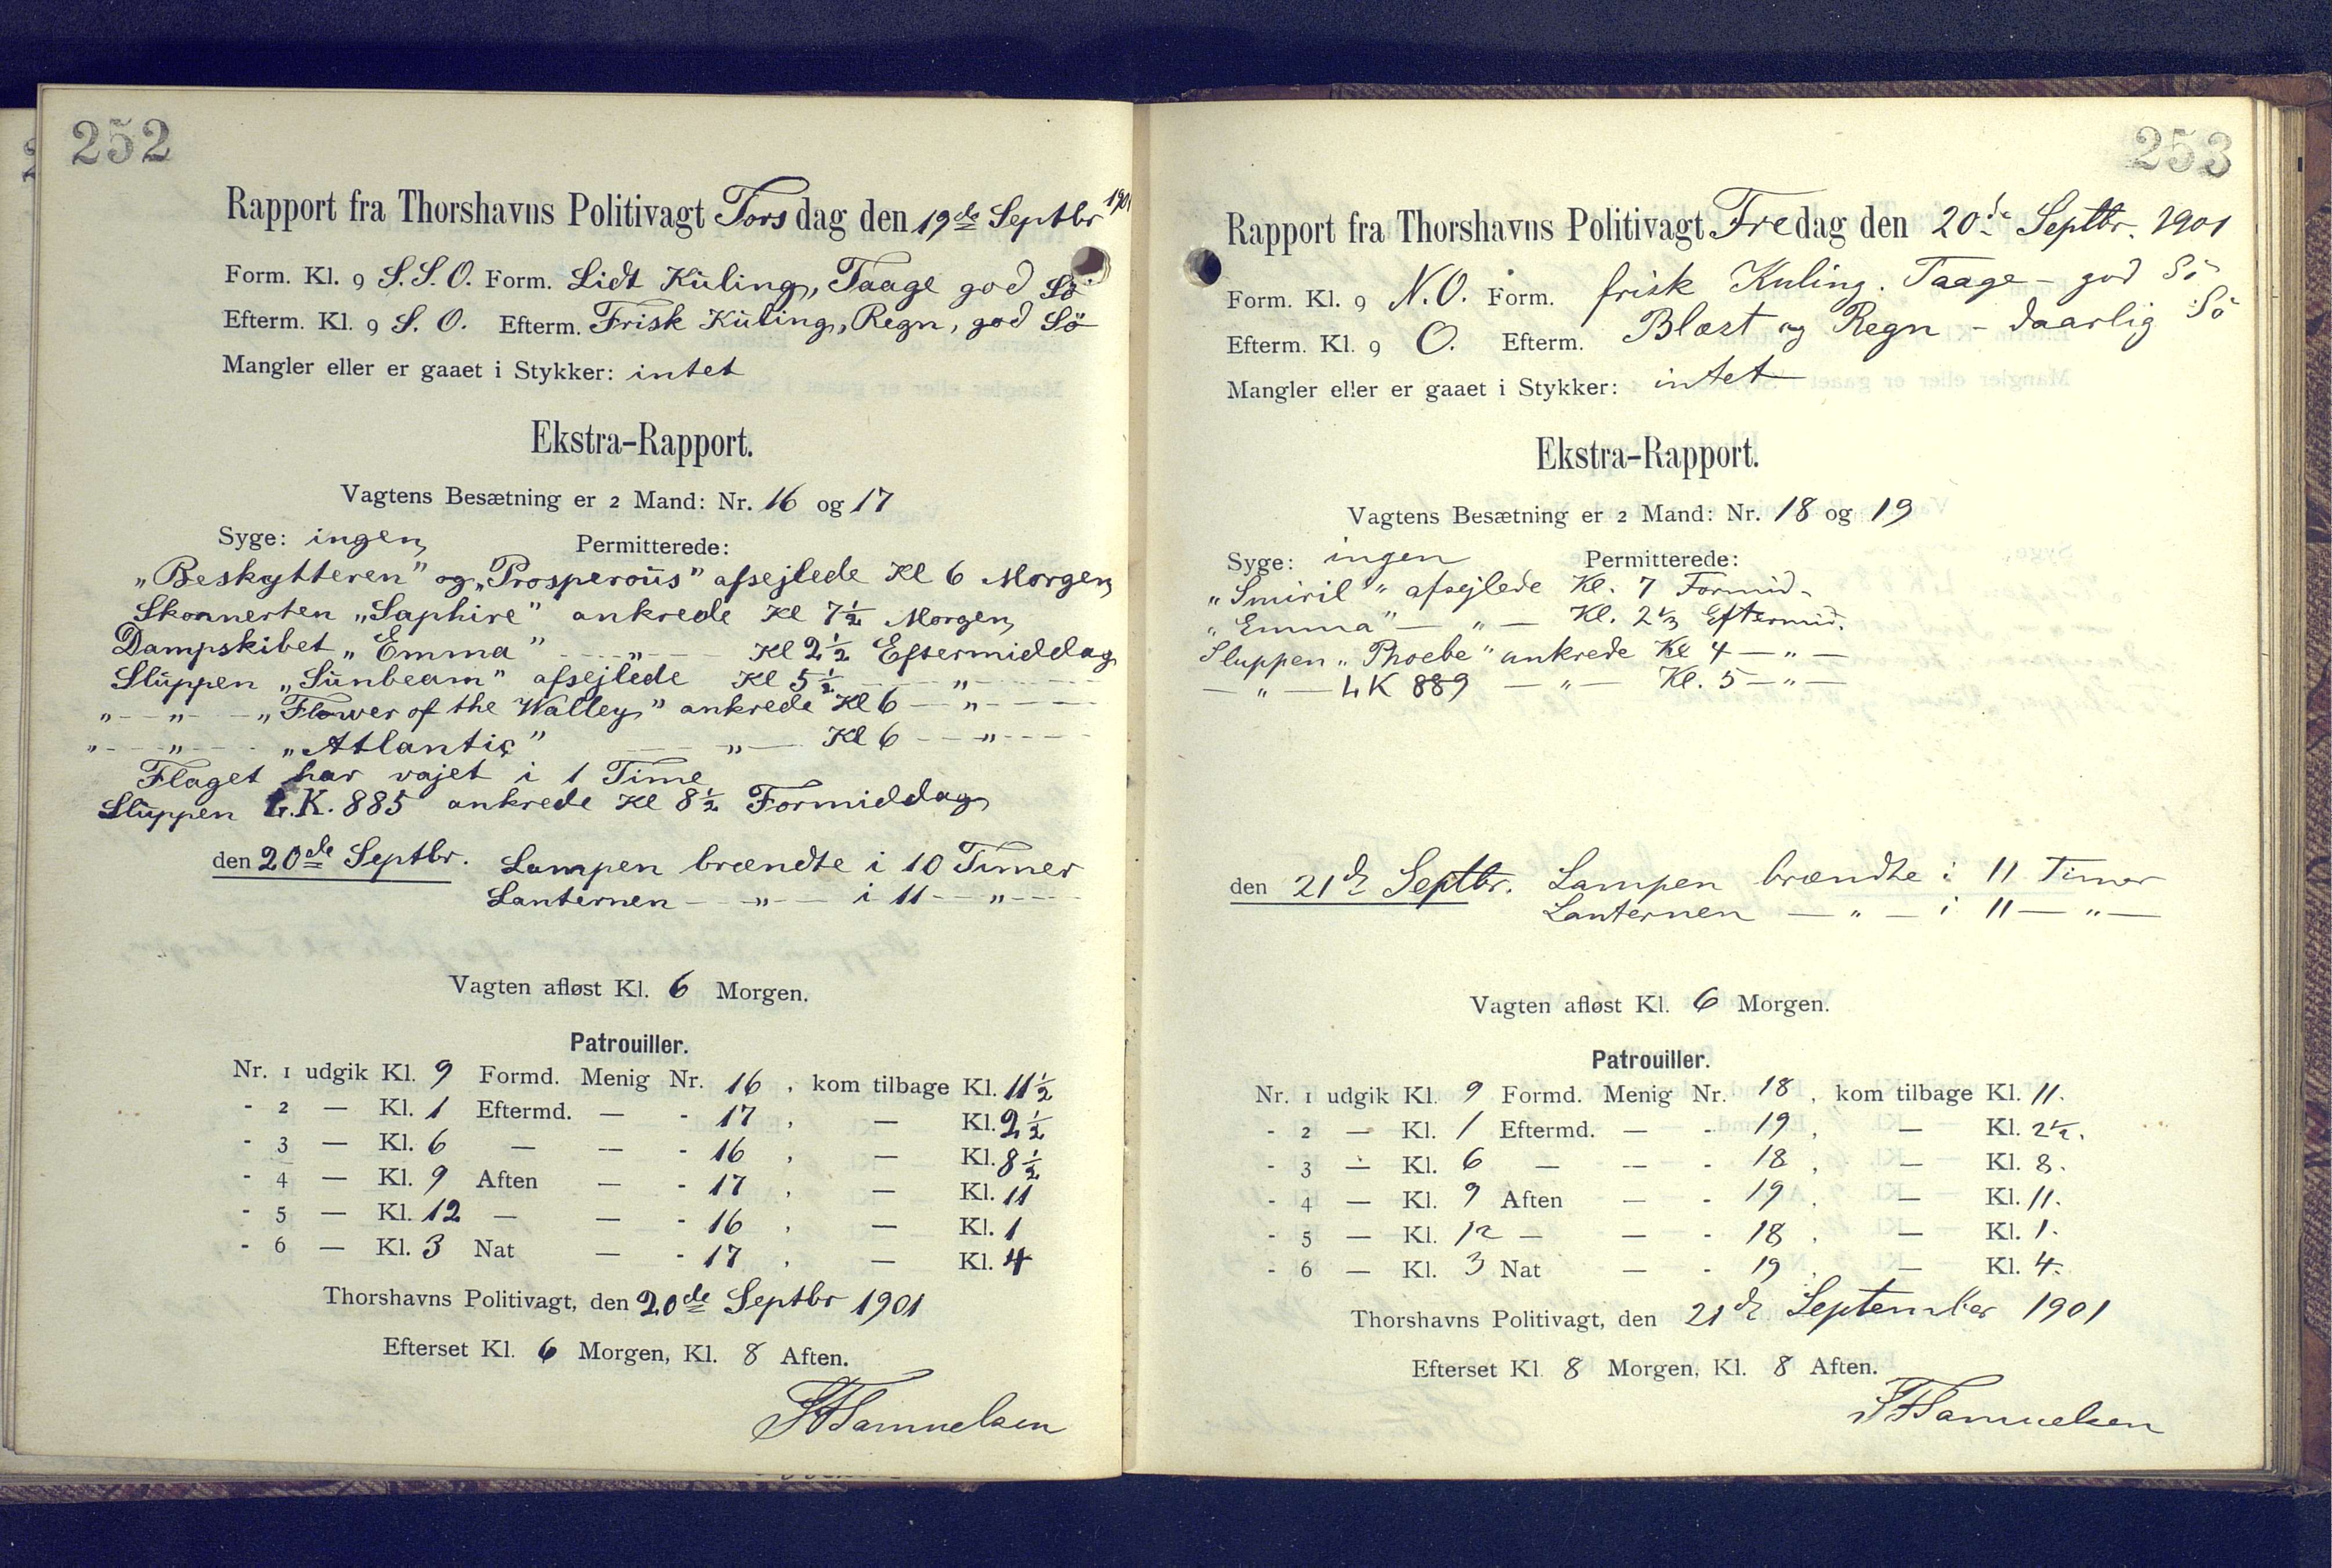 252
Rapport fra Thorshavns Politivagt Torsdag den 19de Septbr 1901
Form. Kl. 9 S.S.O. Form. Lidt Kuling, Taage god Sö
Efterm. Kl. 9 S. O. Efterm. Frisk Kuling, Regn, god Sö
Mangler eller er gaaet i Stykker: intet
Ekstra-Rapport.
Vagtens Besætning er 2 Mand: Nr. 16 og 17
Syge: ingen Permitterede:
„Beskytteren" og „Prosperous" afsejlede Kl 6 Morgen
Skonnerten „Saphire" ankrede Kl 7½ Morgen
Dampskibet „Emma" — „ — Kl 2½ Eftermiddag
Sluppen „Sunbeam" afsejlede Kl 5½ — „ —
„ — „ — „Flower of the Walley" ankrede Kl 6 — „ —
„ — „ — „Atlantic" — „ — Kl 6 — „ —
Flaget har vajet i 1 Time
Sluppen L.K. 885 ankrede Kl 8½ Formiddag
den 20de Septbr. Lampen brændte i 10 Timer
Lanternen — „ — i 11 — „ —
Vagten afløst Kl. 6 Morgen.
Patrouiller.
Nr. 1 udgik Kl. 9 Formd. Menig Nr. 16, kom tilbage Kl. 11½
- 2 — Kl. 1 Eftermd. — - 17, — Kl. 2½
- 3 — Kl. 6 — — - 16, — Kl. 8½
- 4 — Kl. 9 Aften — - 17, — Kl. 11
- 5 — Kl. 12 — — - 16, — Kl. 1
- 6 — Kl. 3 Nat — - 17, — Kl. 4
Thorshavns Politivagt, den 20de Septbr 1901
Efterset Kl. 6 Morgen, Kl. 8 Aften.
Samuelsen
253
Rapport fra Thorshavns Politivagt Fredag den 20de Septbr. 1901
Form. Kl. 9 N.O. Form. frisk Kuling. Taage - god Sö
Efterm. Kl. 9 O. Efterm. Blæst og Regn - daarlig Sö
Mangler eller er gaaet i Stykker: intet
Ekstra-Rapport.
Vagtens Besætning er 2 Mand: Nr. 18 og 19
Syge: ingen Permitterede:
„Smiril" afsejlede Kl. 7 Formid.
„Emma" — „ — Kl. 2⅓ Eftermid.
Sluppen „Phoebe" ankrede Kl 4 — „ —
— „ — LK 889 — „ — Kl. 5 — „ —
den 21de Septbr. Lampen brændte i 11 Timer
Lanternen — „ — i 11 — „ —
Vagten afløst Kl. 6 Morgen.
Patrouiller.
Nr. 1 udgik Kl. 9 Formd. Menig Nr. 18, kom tilbage Kl. 11.
- 2 — Kl. 1 Eftermd. — - 19, — Kl. 2½.
- 3 — Kl. 6 — — - 18, — Kl. 8.
- 4 — Kl. 9 Aften — - 19, — Kl. 11.
- 5 — Kl. 12 — — - 18, — Kl. 1.
- 6 — Kl. 3 Nat — - 19, — Kl. 4.
Thorshavns Politivagt, den 21de September 1901
Efterset Kl. 8 Morgen, Kl. 8 Aften.
Samuelsen